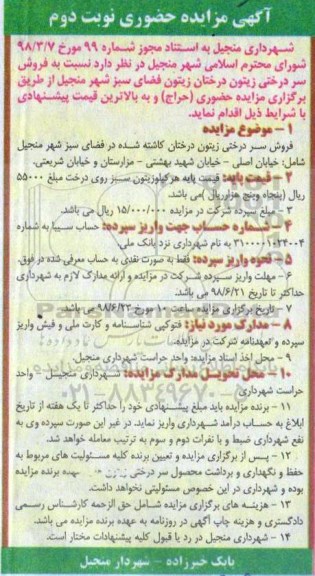 آگهی مزایده حضوری نوبت دوم
شهرداری منجیل به استناد مجوز شماره ۹۹ مورخ ۹۸/۳/۷
شورای محترم اسلامی شهر منجیل در نظر دارد نسبت به فروش
سر درختی زیتون درختان زیتون فضای سبز شهر منجیل از طریق
برگزاری مزایده حضوری (حراج) و به بالاترین قیمت پیشنهادی
با شرایط ذیل اقدام نماید.
۱ – موضوع مزایده
فروش سر درختی زیتون درختان کاشته شده در فضای سبز شهر منجیل
شامل: خیابان اصلی – خیابان شهید بهشتی – مزارستان و خیابان شریعتی.
۲ – قیمت پایه: قیمت پایه هر کیلو زیتون سبز روی درخت مبلغ ۵۵۰۰۰
ریال (پنجاه و پنج هزار ریال) می باشد.
۳ – مبلغ سپرده شرکت در مزایده ۱۵/۰۰۰/۰۰۰ ریال می باشد.
۴ – شماره حساب جهت واریز سپرده: حساب سیبا به شماره
۳۱۰۰۰۰۱۰۲۴۰۰۴ به نام شهرداری نزد بانک ملی.
۵ – نحوه واریز سپرده: فقط به صورت نقدی به حساب معرفی شده در فوق.
۶ – مهلت واریز سپرده شرکت در مزایده و ارائه مدارک لازم به شهرداری
حداکثر تا تاریخ ۹۸/۶/۲۱ می باشد.
۷ – تاریخ برگزاری مزایده ساعت ۱۰ مورخ ۹۸/۶/۲۳ می باشد.
۸ – مدارک مورد نیاز: فتوکپی شناسنامه و کارت ملی و فیش واریز
سپرده و تعهدنامه شرکت در مزایده.
۹ – محل اخذ اسناد مزایده: واحد حراست شهرداری منجیل.
۱۰ – محل تحویل مدارک مزایده: شهرداری منجیل – واحد
حراست شهرداری
۱۱ – برنده مزایده باید مبلغ پیشنهادی خود را حداکثر تا یک هفته از تاریخ
ابلاغ به حساب درآمد شهرداری واریز نماید. در غیر این صورت سپرده وی به
نفع شهرداری ضبط و با نفرات دوم و سوم به ترتیب معامله خواهد شد.
۱۲ – پس از برگزاری مزایده و تعیین برنده کلیه مسئولیت های مربوط به
حفظ و نگهداری و برداشت محصول سر درختی زیتون عهده برنده مزایده
بوده و شهرداری در این خصوص مسئولیتی نخواهد داشت.
۱۳ – هزینه های برگزاری مزایده شامل حق الزحمه کارشناس رسمی
دادگستری و هزینه چاپ آگهی در روزنامه به عهده برنده مزایده می باشد.
۱۴ – شهرداری منجیل در رد یا قبول کلیه پیشنهادات مختار است.
بابک خبرزاده – شهردار منجیل
۰۲۱-۸۸۳۴۹۶۷۰-۵